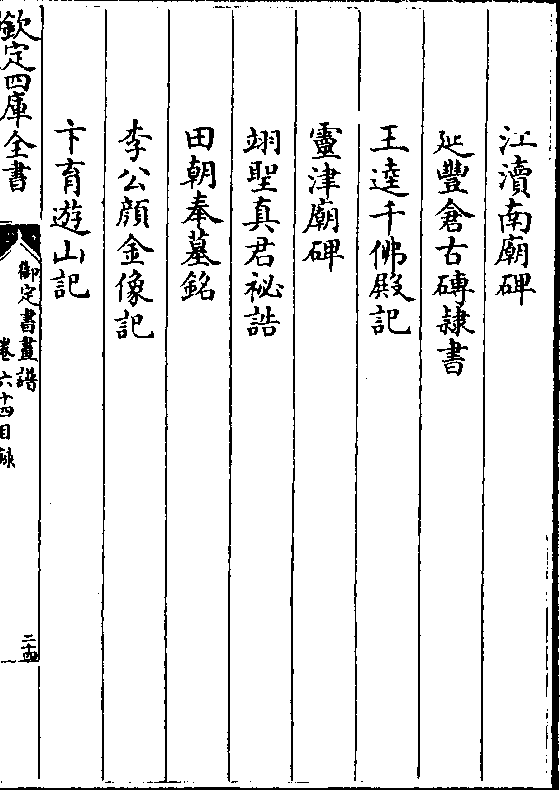 江瀆南廟碑
延豐倉古磚隷書
王逵千佛殿記
靈津廟碑
翊聖真君祕誥
田朝奉墓銘
李公顔金像記
卞育遊山記
欽定四庫全書
御定書畫譜
卷六十四目録
二十四